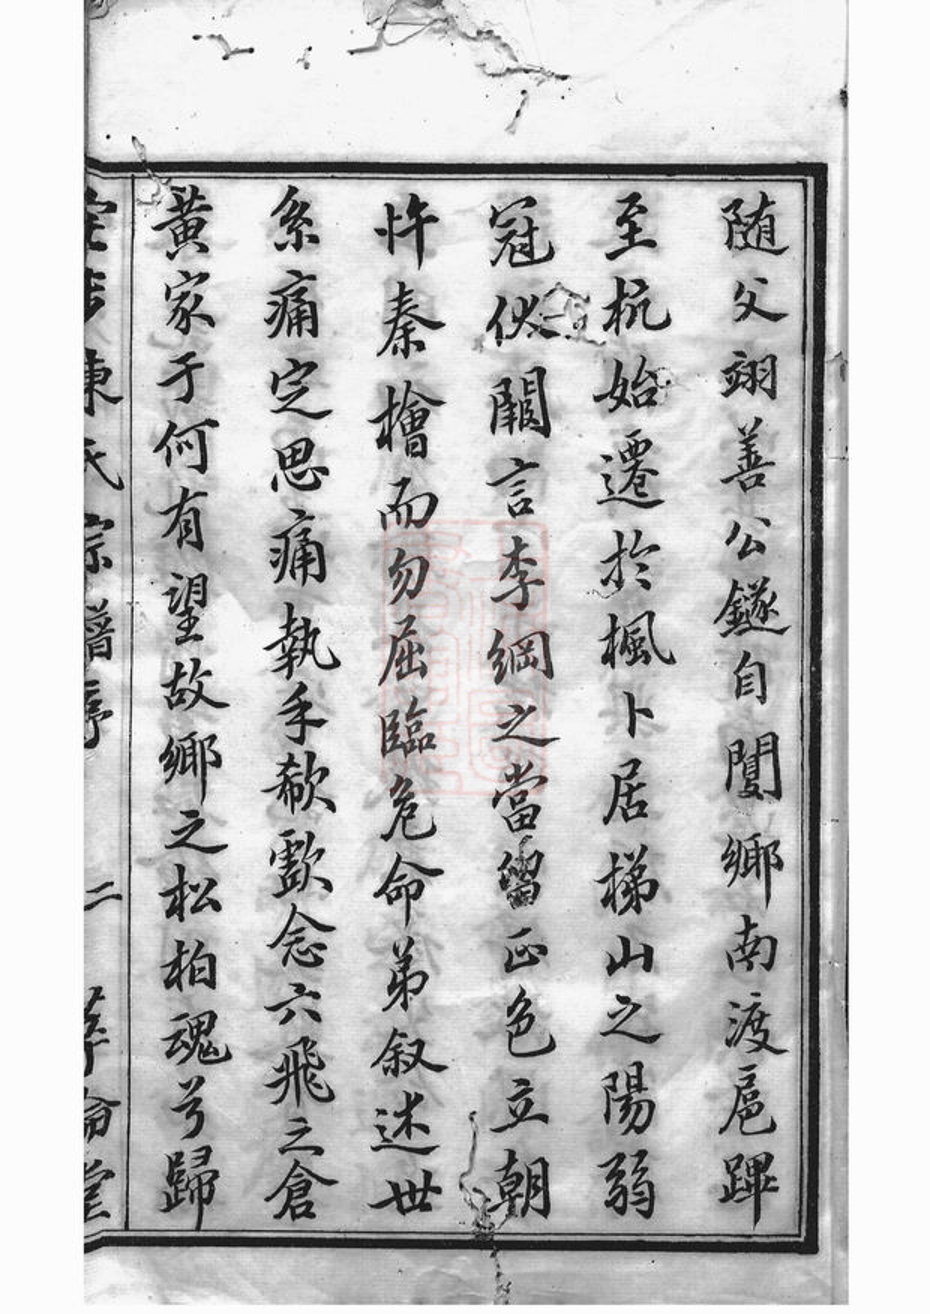 随父翊善公鐩自閿鄉南渡扈蹕
至杭始遷於楓卜居梯山之陽弱
冠伏闕言李綱之當留正色立朝
忤秦檜而勿屈臨危命弟叙述世
系痛定思痛執手欷歔念六飛之倉
黄家于何有望故鄉之松柏魂兮歸
陳氏宗譜序 二 倫堂